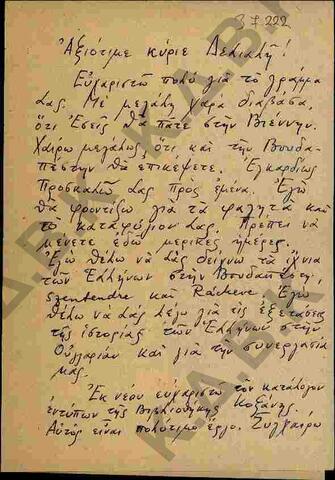 3 I 222
Ἀξιότιμε κύριε Δελιαλῆ!
Εὐχαριστῶ πολύ γιά τό γράμμα
Σας. Μέ μεγάλη χαρα διαβάσα,
ὅτι Ἐσεῖς θά πᾶτε στήν Βιέννην.
Χαίρω μεγάλος, ὅτι καί την Βουδα-
πέστην θά ἐπικέψετε. Ἐγκαρδίως
Προσκαλῶ Σας πρός ἐμένα. Ἐγώ
θά φροντίζω γιά τά φαγητά καί
τό καταφώλιον Σας. Πρέπει νά
μένετε ἐδω μερικές ἡμέρες.
Ἐγώ θέλω νά Σάς δείγνω τά ἴχνια
τῶν Ἑλλήνων στήν Βουδαπέστη,
Szentendre καί Ráckeve. Ἐγώ
θέλω να Σας λέγω γιά τίς ἐξετάσεις
τῆς ἱστορίας τῶν Ἑλλήνων στήν
Οὐγγαρίαν καί γιά τήν συνεργασία
μας.
Ἐκ νέου εὐχαριστῶ τόν κατάλογον
ἐντύπων τῆς Βιβλιοθήκης Κοζάνης.
Αὐτός εἶναι πολύτιμο ἔργο. Συγχαίρω
Κ.Δ.Β.Κ.